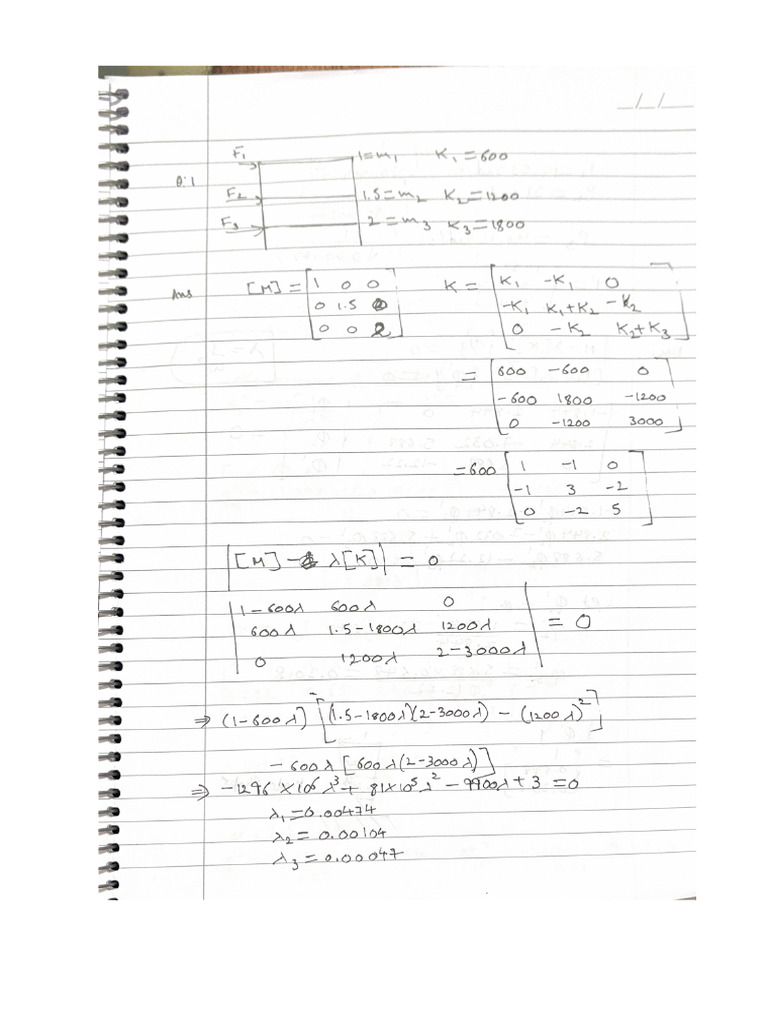 _/_/__
F1 1=m1 K1=600
Q:1
F2 1.5=m2 K2=1200
F3 2=m3 K3=1800
Ans [M] = [1 0 0 K = [K1 -K1 0
0 1.5 0 -K1 K1+K2 -K2
0 0 2] 0 -K2 K2+K3]
= [600 -600 0
-600 1800 -1200
0 -1200 3000]
=600 [1 -1 0
-1 3 -2
0 -2 5]
|[M] - λ[K]| = 0
|1-600λ 600λ 0
600λ 1.5-1800λ 1200λ | = 0
0 1200λ 2-3000λ|
⇒ (1-600λ) [(1.5-1800λ)(2-3000λ) - (1200λ)²]
- 600λ [600λ(2-3000λ)]
⇒ -1296×10⁶λ³ + 81×10⁵λ² - 9900λ + 3 = 0
λ1=0.00474
λ2=0.00104
λ3=0.00047